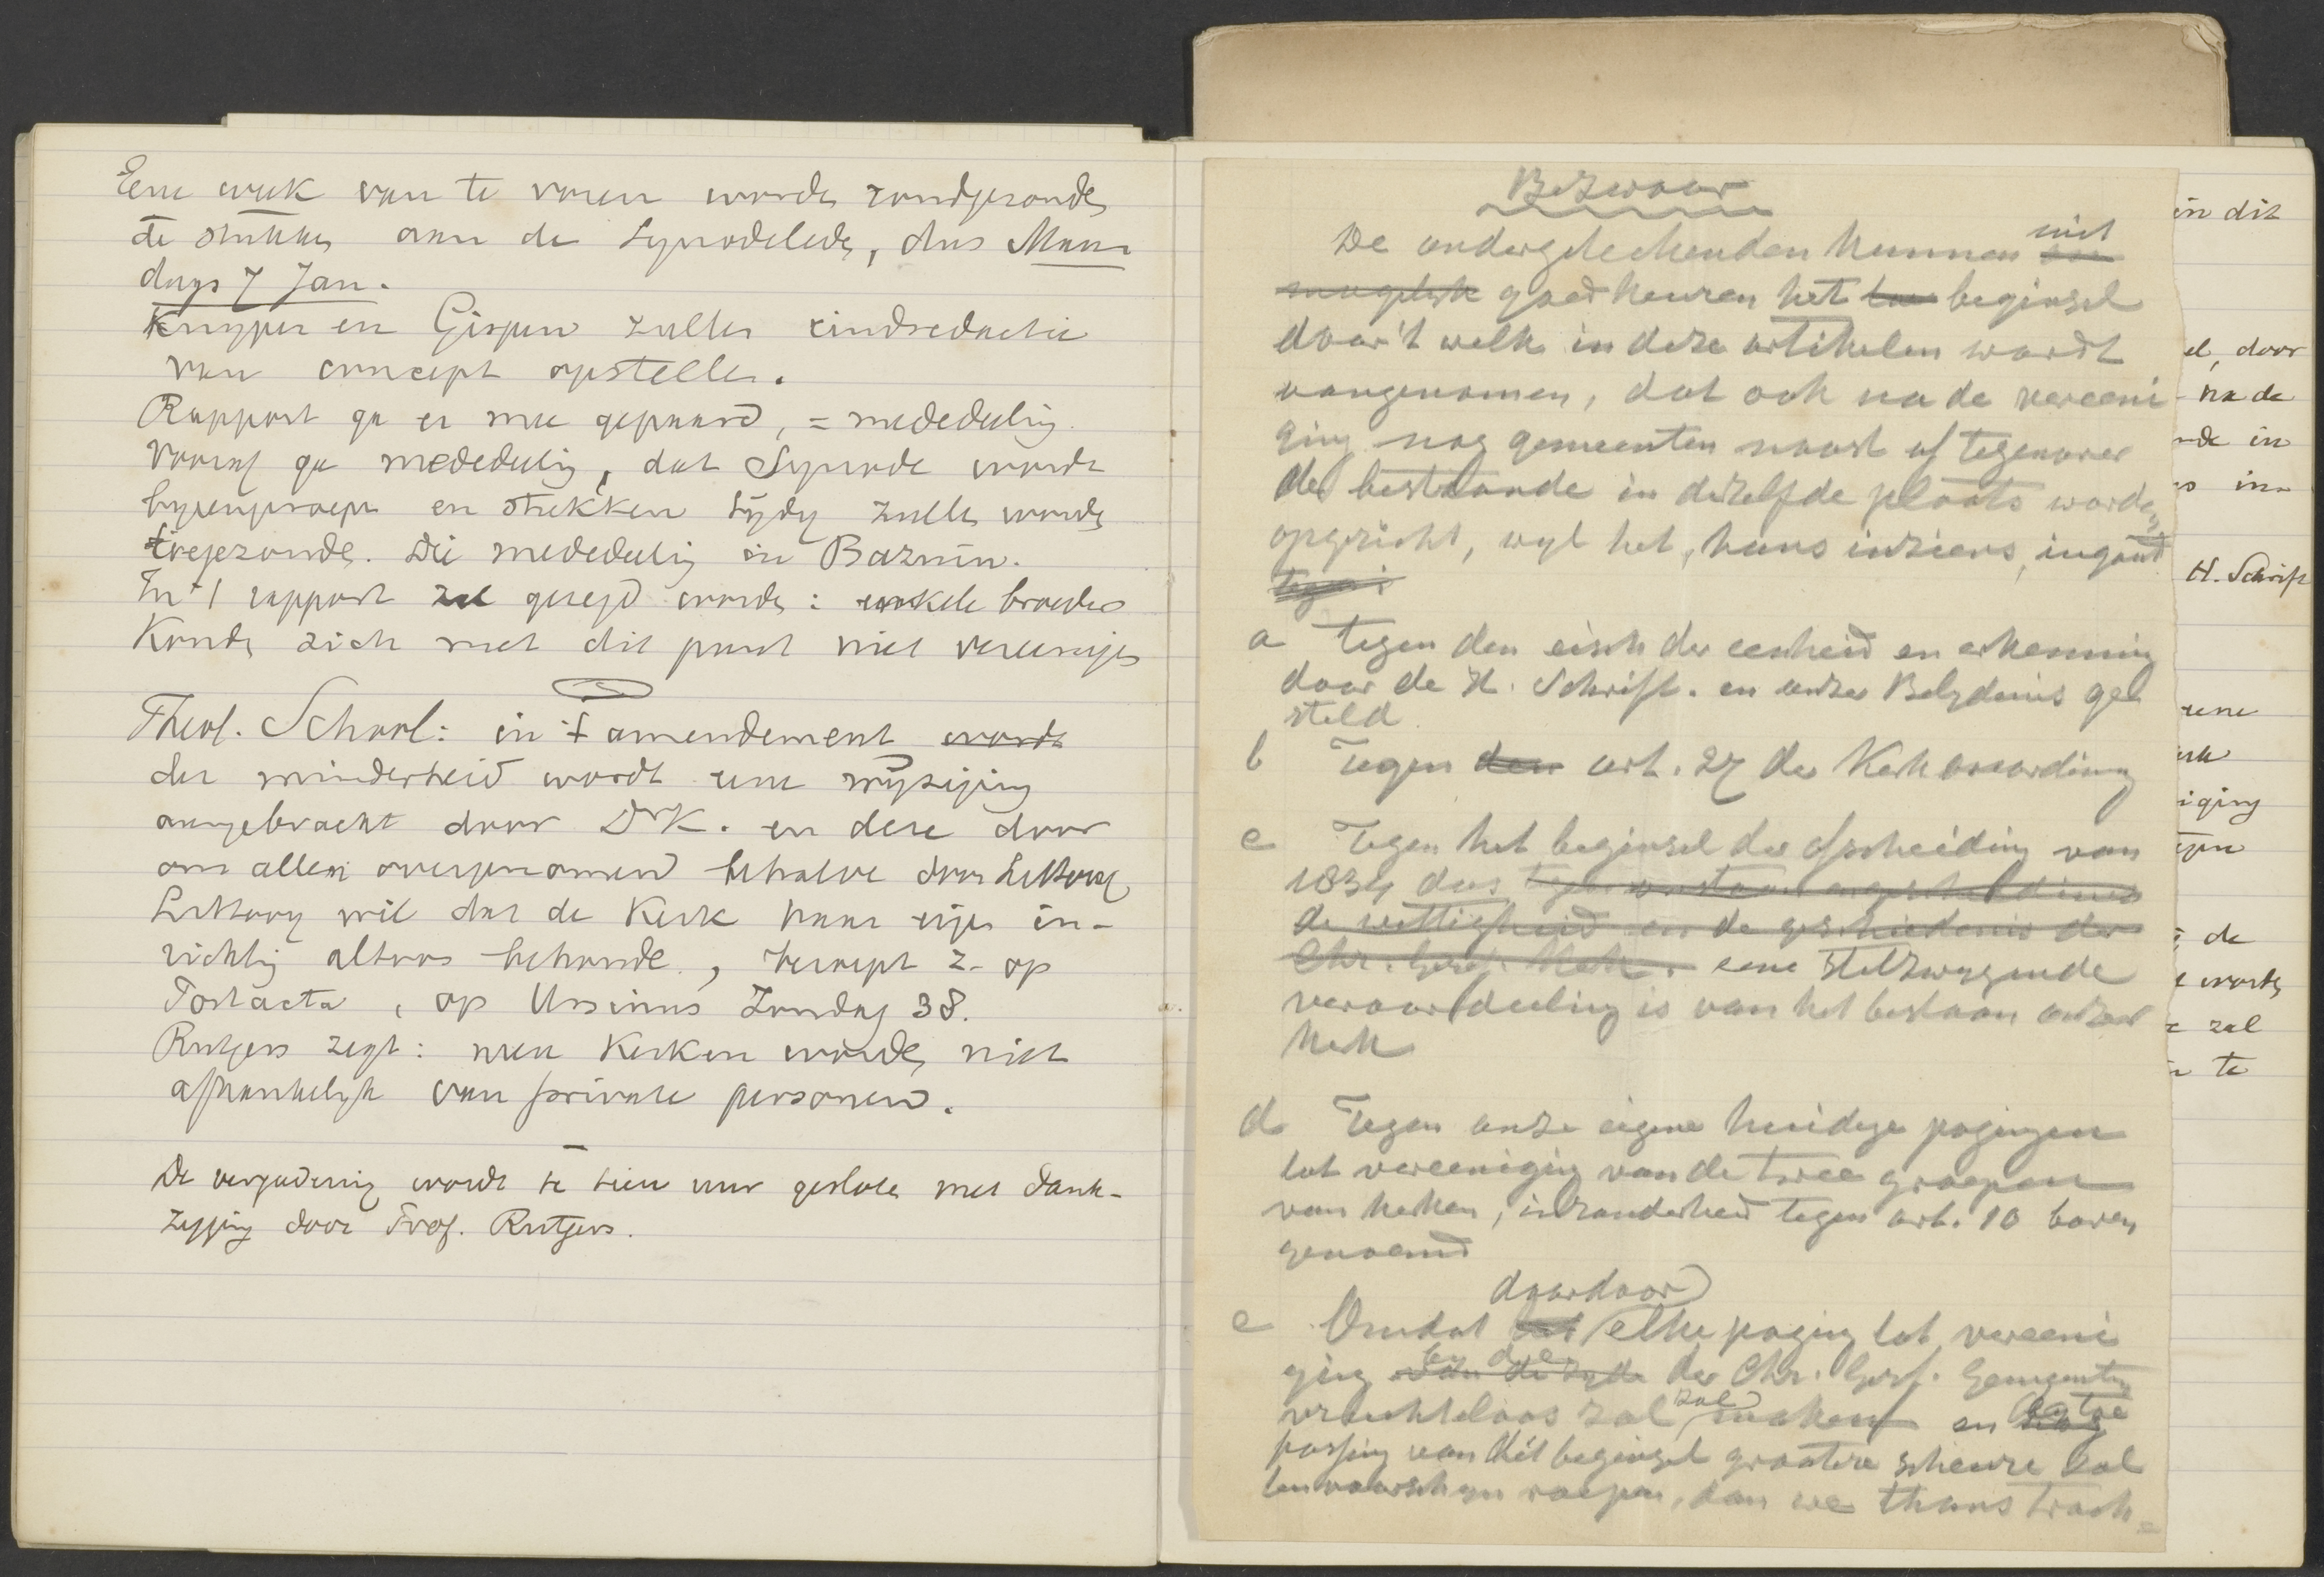 Eene week van te voren worden rondgezonden
de stukken aan de Synodeleden, dus Maan
dags 7 Jan.
Kuyper en Gispen zullen eindredactie
van concept opstellen.
Rapport ga er mee gepaard, = mededeling.
Vooraf ga mededeling, dat Synode wordt
bijeengeroepen en stukken tijdig zullen worden
toegezonden. Die mededeling in Bazuin.
In 't rapport zal gezegd worden: enkele broeders
konden zich met dit punt niet vereenigen
Theol. School: in 't amendement wordt
der minderheid wordt eene wijziging
aangebracht door Dr K. en deze door
ons allen overgenomen behalve door Littooy
Littooy wil dat de Kerk haar eigen in-
richting altoos behoude, beroept z. op
Postacta, op Ursinus Zondag 38.
Rutgers zegt: men Kerken worden niet
afhankelijk van private personen.
De vergadering wordt te tien uur gesloten met dank-
zegging door Prof. Rutgers.
Bezwaar
De ondergeteekenden kunnen niet
mogelijk goedkeuren het beginsel
door 't welk in deze artikelen wordt
aangenomen, dat ook na de vereeni
ging nog gemeenten naast of tegenover
de bestaande in dezelfde plaats worden
opgericht, wijl het, huns inziens, ingaat
tegen
a tegen den eisch der eenheid en erkenning
door de H. Schrift. en onze Belydenis ge
steld
b Tegen den art. 27 der Kerkenordening
c Tegen het beginsel der afscheiding van
1834 dus
de wettigheid en de geschiedenis der
Chr. Geref. Kerk. eene stilzwygende
veroordeeling is van het bestaan onzer
Kerk
d Tegen onze eigene huidige pogingen
tot vereeniging van de twee groepen
van kerken, inzonderheid tegen art. 10 boven
genoemd
daardoor
e Omdat het elke poging tot vereeni
ging van de zyde der Chr. Geref. Gemeenten
vruchteloos zal maken en by toe
passing van dit beginsel grootere scheure zal
ten voorschyn roepen, dan we thans trach-
in dit
el, door
na de
de in
H. Schrift
eene
iging
de
worden
zal
te